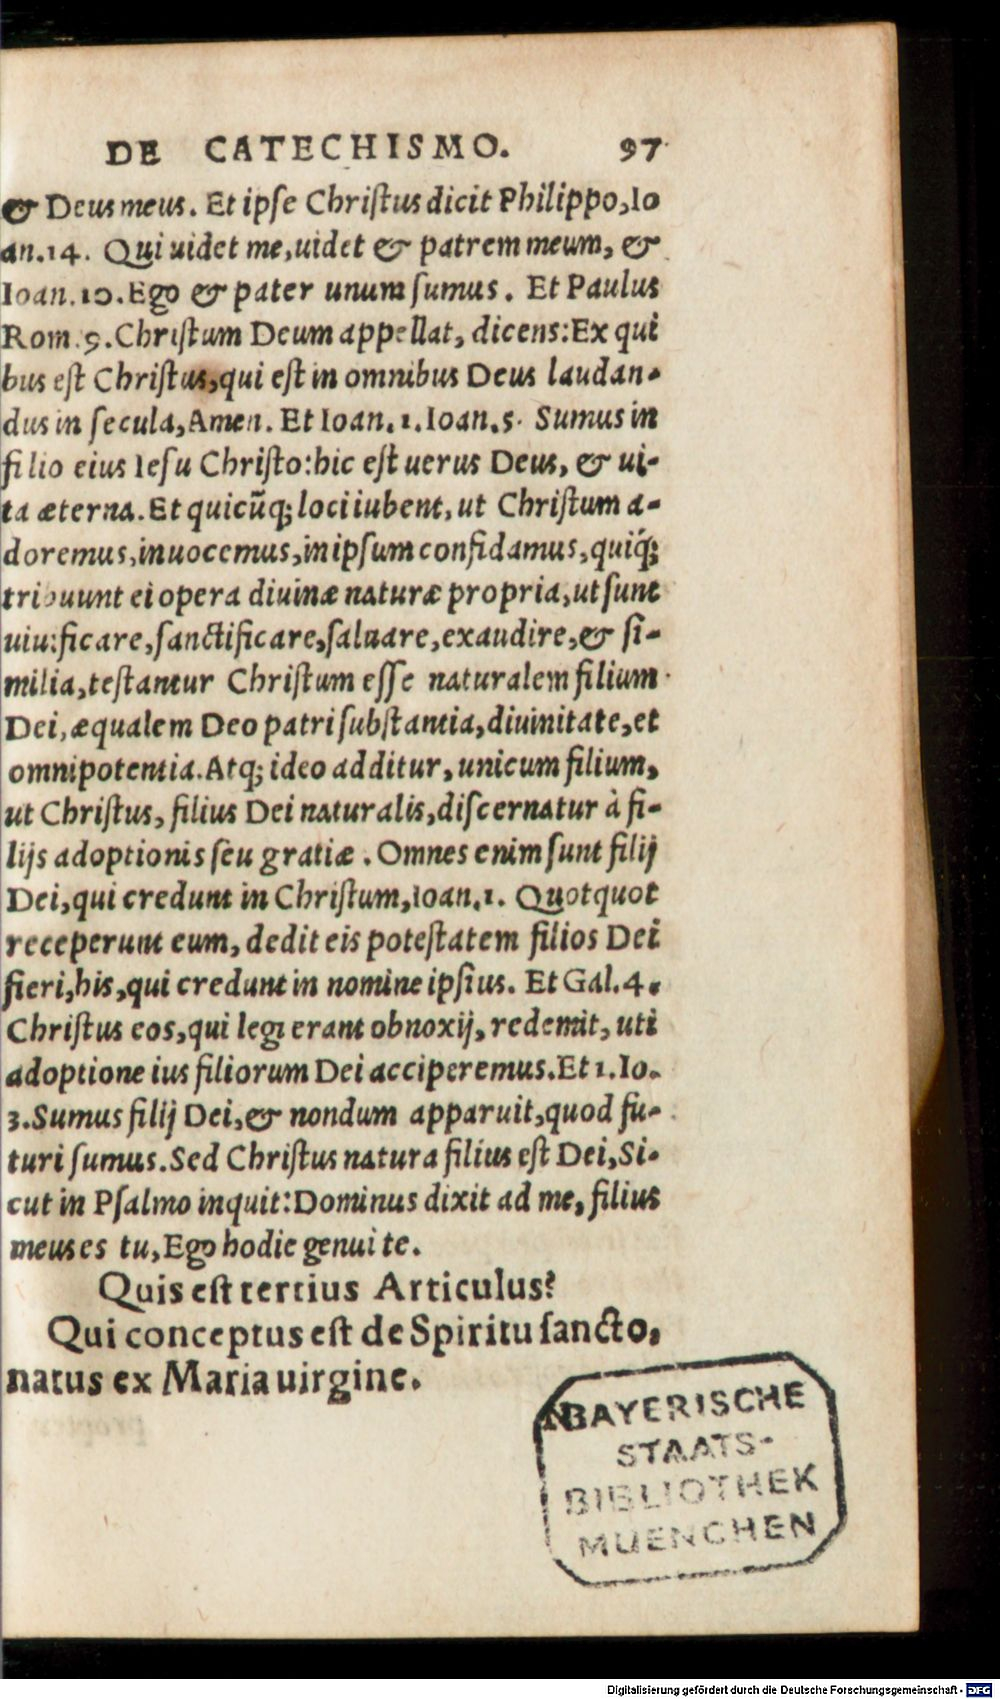 DE CATECHISMO. 97
& Deus meus. Et ipſe Chriſtus dicit Philippo, Io
an. 14. Qui uidet me, uidet & patrem meum, &
Ioan. 10. Ego & pater unum ſumus. Et Paulus
Rom. 9. Chriſtum Deum appellat, dicens: Ex qui
bus eſt Chriſtus, qui eſt in omnibus Deus laudan-
dus in ſecula, Amen. Et Ioan. 1. Ioan. 5. Sumus in
filio eius Ieſu Chriſto: hic eſt uerus Deus, & ui-
ta æterna. Et quicũq; loci iubent, ut Chriſtum a-
doremus, inuocemus, in ipſum confidamus, quiq́;
tribuunt ei opera diuinæ naturæ propria, ut ſunt
uiuificare, ſanctificare, ſaluare, exaudire, & ſi-
milia, teſtantur Chriſtum eſſe naturalem filium
Dei, æqualem Deo patri ſubſtantia, diuinitate, et
omnipotentia. Atq; ideo additur, unicum filium,
ut Chriſtus, filius Dei naturalis, diſcernatur à fi-
lijs adoptionis ſeu gratiæ. Omnes enim ſunt filij
Dei, qui credunt in Chriſtum, Ioan. 1. Quotquot
receperunt eum, dedit eis poteſtatem filios Dei
fieri, his, qui credunt in nomine ipſius. Et Gal. 4.
Chriſtus eos, qui legi erant obnoxij, redemit, uti
adoptione ius filiorum Dei acciperemus. Et 1. Io.
3. Sumus filij Dei, & nondum apparuit, quod fu-
turi ſumus. Sed Chriſtus natura filius eſt Dei, Si-
cut in Pſalmo inquit: Dominus dixit ad me, filius
meus es tu, Ego hodie genui te.
Quis eſt tertius Articulus?
Qui conceptus eſt de Spiritu ſancto,
natus ex Maria uirgine.
N
BAYERISCHE
STAATS-
BIBLIOTHEK
MUENCHEN
Digitalisierung gefördert durch die Deutsche Forschungsgemeinschaft - DFG